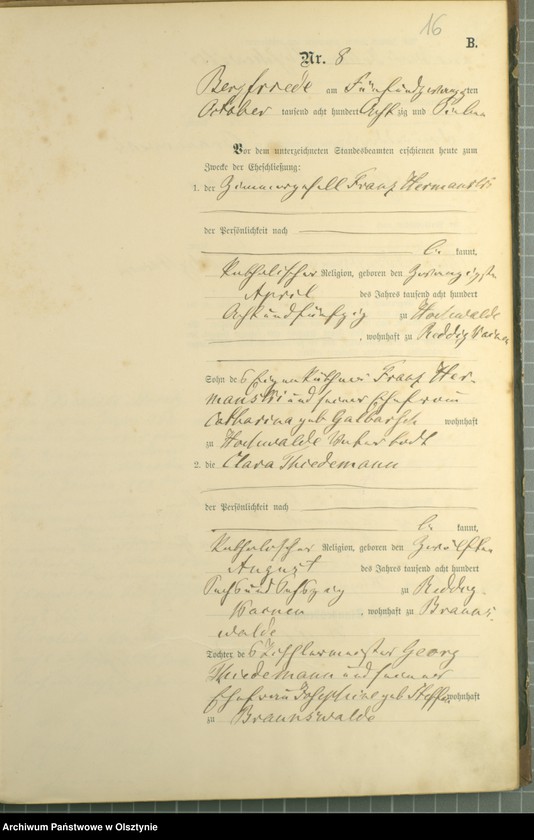 16
B.
Nr. 8
Bergfriede am Fünfundzwanzigten
October tausend acht hundert Achtzig und Sieben
Vor dem unterzeichneten Standesbeamten erschienen heute zum
Zwecke der Eheschließung:
1. der Zimmergesell Franz Hermanski
der Persönlichkeit nach
be kannt,
Katholischer Religion, geboren den Zwanzigsten
April des Jahres tausend acht hundert
Achtundfünfzig zu Hochwalde
, wohnhaft zu
Sohn des Eigenkäthners Franz Her-
manski und seiner Ehefrau
Catharina geb wohnhaft
zu Hochwalde
2. die Clara Thiedemann
der Persönlichkeit nach
be kannt,
Katholischer Religion, geboren den Zwölften
August des Jahres tausend acht hundert
Sechsundsechszig zu
, wohnhaft zu Brauns-
walde
Tochter des Zieglermeister Georg
Thiedemann und seiner
Ehefrau Josephine geb wohnhaft
zu Braunswalde
Archiwum Państwowe w Olsztynie